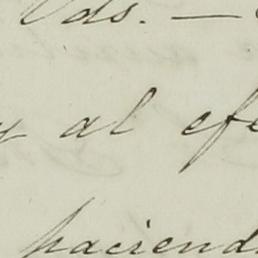 Vds. —
y al efe
haciend